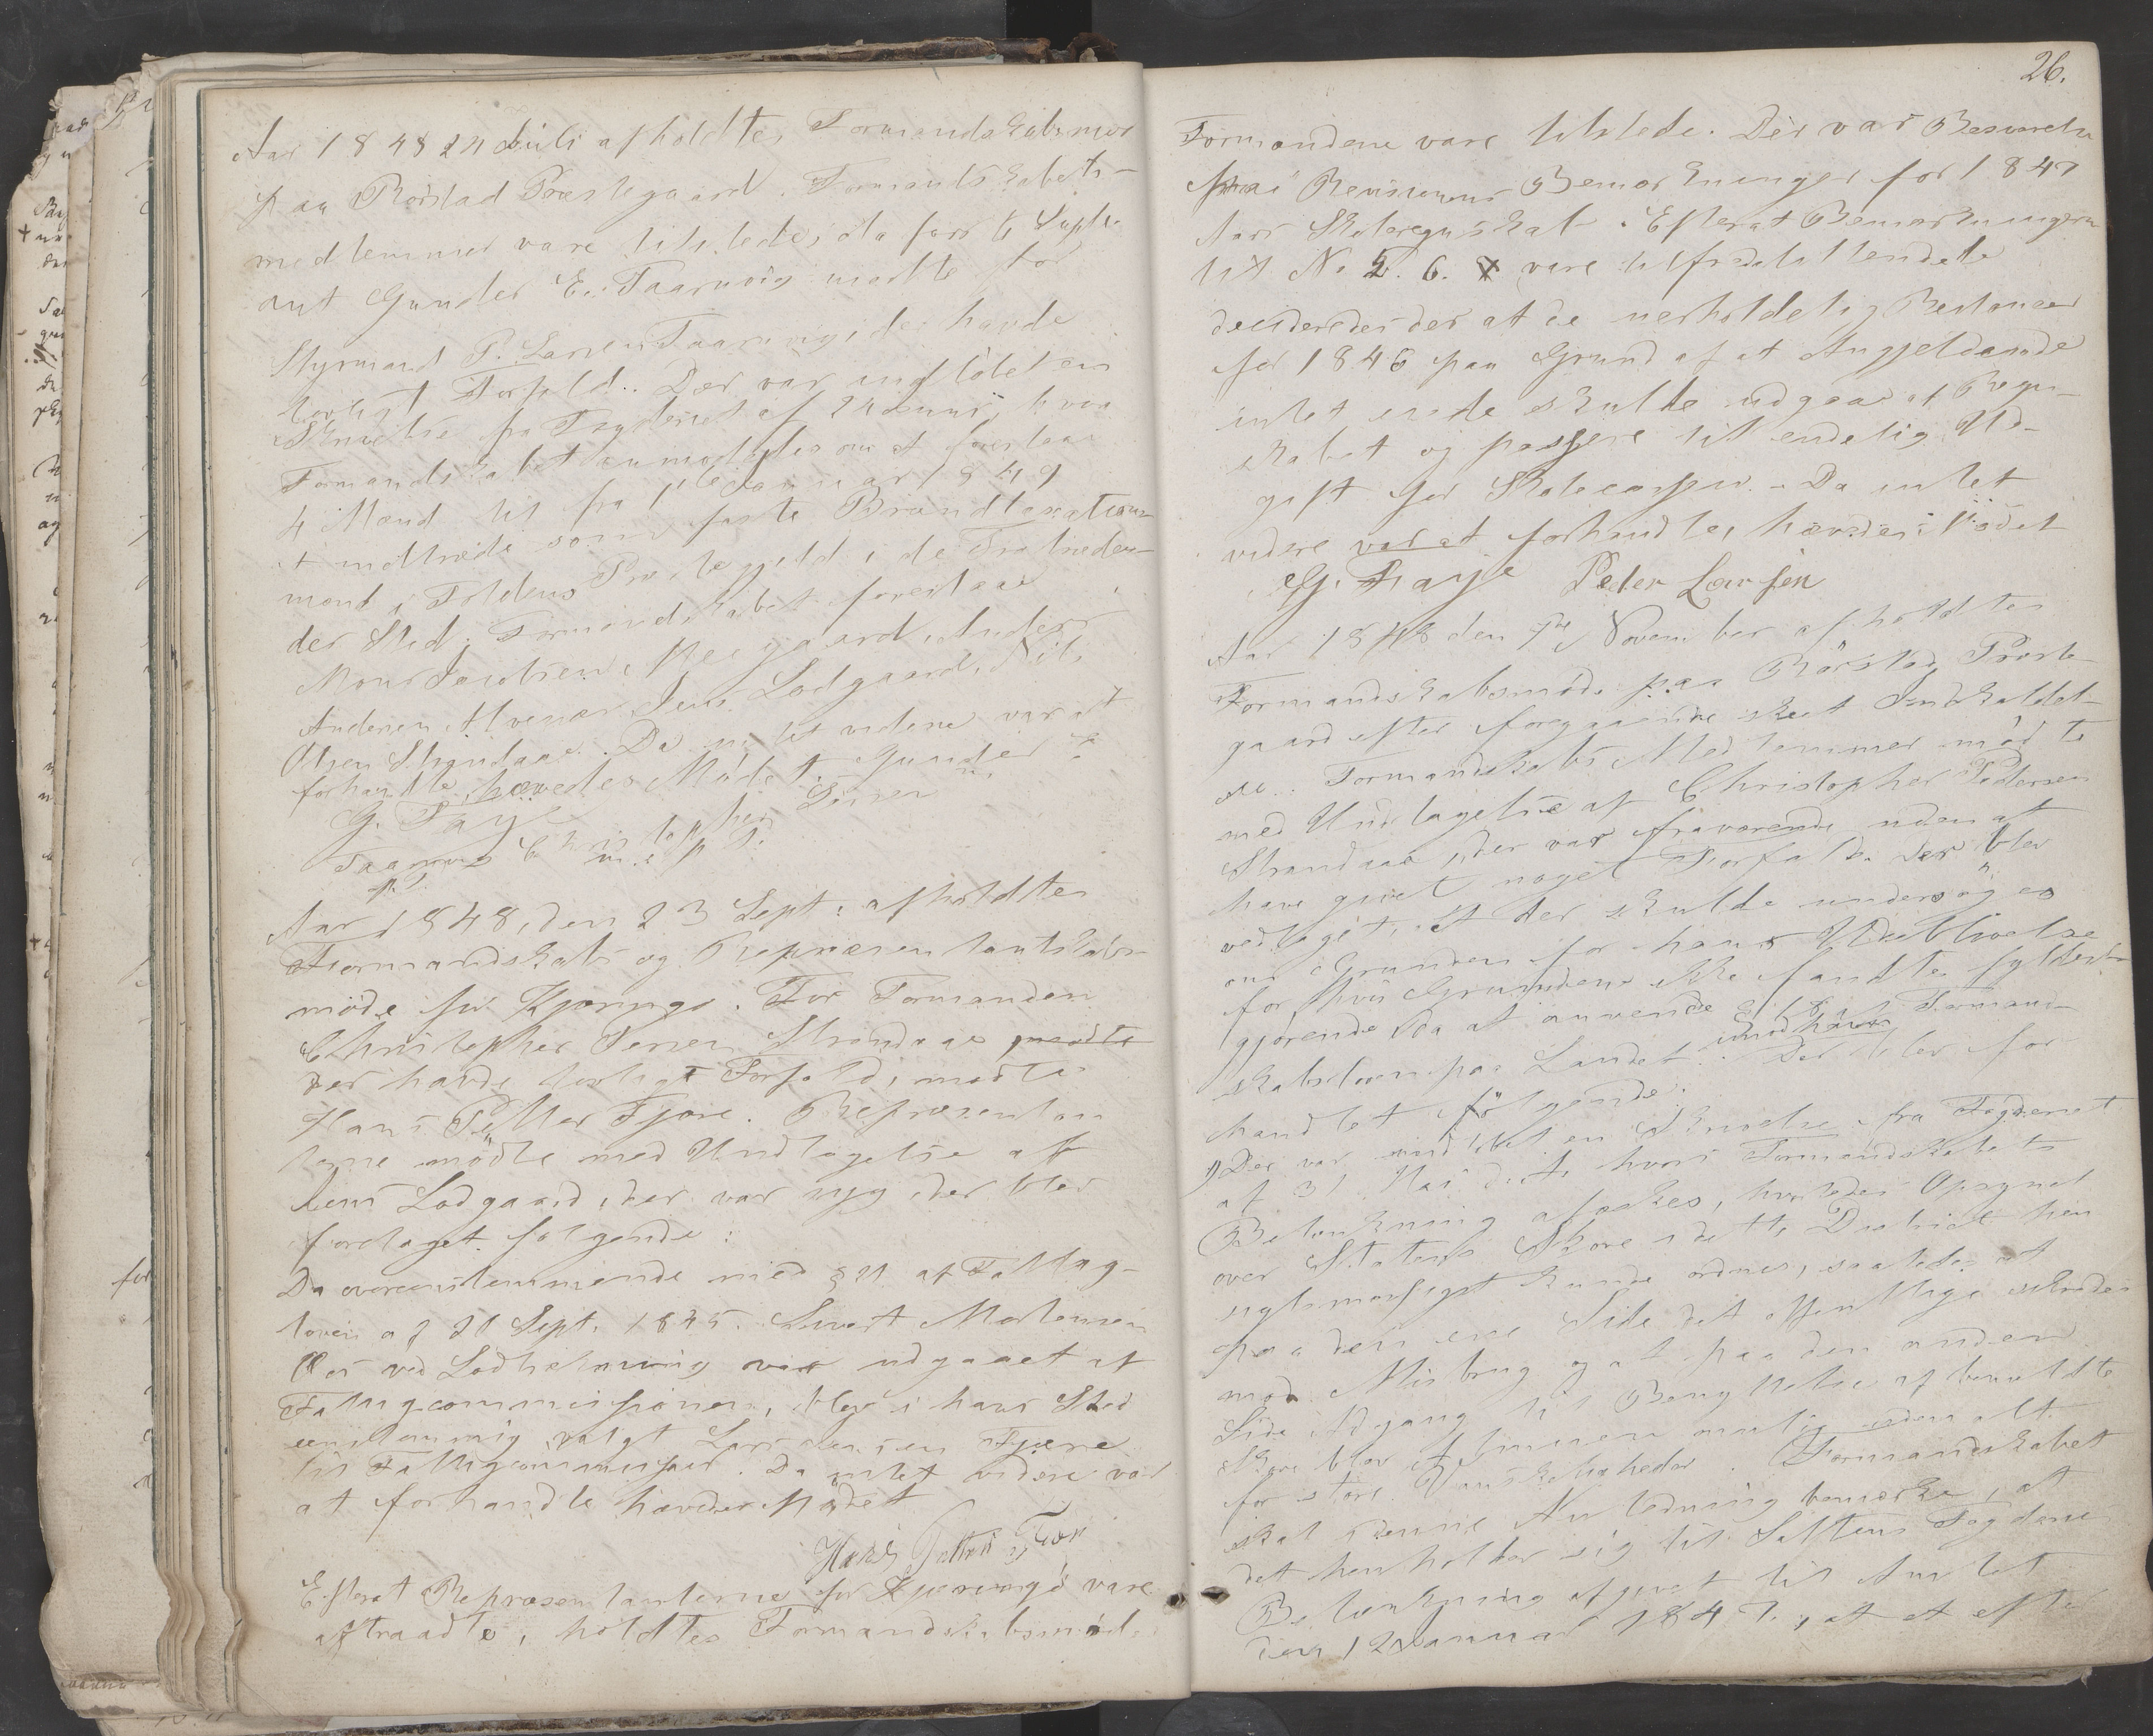 Aar 1848 24 Juli afholdtes Formandskabsmøde
paa Rørstad Præstegaard. Formandskabets
medlemmer vare tilstede, da forr 1 Suple
ant Gunder E. Taarnvig mødte for
Styrmand P. Larsen Taarnvig, der havde
lovligt Forfald. Der var indløbet en
Skrivelse fra Fogderiet af 24 Juni, hvori
Formandskabet anmodedes om at foreslaae
4 Mænd til fra 1 Januar 1849
at indtræde som faste Brandtaxations-
mænd i Foldens Præstegjeld i de Fratræden-
der Sted; Formandskabet foreslaae
Mons Jacobsen Myegaard, Anders
Andersen Alvenes, Jens Lodgaard, Nils
Olsen Strandaae. Da intet videre var at
forhandle, hævedes Mødet. Gunder
G. Faye
Taarnvig Christopher
Aar 1848, den 23 Sept. afholdtes
Formandskabs og Repræsentantskabs-
møde for Kjæringø. For Formanden
Christopher Strandaae mødte
der havde lovligt Forfald, mødte
Hans Petter Fjære. Repræsentan
terne mødte med Undtagelse af
Jens Lodgaard, der var syg, der blev
foretaget følgende:
Da overeenstemmende med § 21 af Fattig-
loven af 20 Sept. 1845. Sivert Mortensen
Oos ved Lodtrækning var udgaaet af
Fattigcommissionen, blev i hans Sted
eenstemmig valgt Lars Jensen Fjære
til Fattigcommissair. Da intet videre var
at forhandle hævedes Mødet
Hans Petter Fjær
Efterat Repræsentanterne for Kjæringø vare
aftraadte, holdtes Formandskabsmøde
26.
Formandene vare tilstede. Der var Besvarelse
paa Revisionens Bemærkninger for 1847
Aars Skoleregnskab. Efterat Bemærkningerne
til No 2. 6. vare tilfredsstillende
decideredes der at de uerholdelig Restancer
for 1846 paa Grund af at Angjeldende
intet eiede skulde udgaae af Regn-
skabet og passere til endelig Ud-
gift for Skolecassen. - Da intet
videre var at forhandle, hævedes Mødet
G. Faye Peder Larsen
Aar 1848 den 7de November afholdtes
Formandskabsmøde paa Rørstad Præste-
gaard efter foregaaende skeet Indkaldel-
se. Formandskabs Medlemmer mødte
med Undtagelse af Christopher Pedersen
Strandaae, der var fraværende uden at
have givet noget Forfald. Der blev
vedtaget, at der skulde undersøges
om Grunden for hans Udeblivelse
for hvis Grunden ikke fandtes fyldest-
gjørende, da at anvende § 18 af Formand-
skabsloven paa Landet imod ham. Der blev for
handlet følgende:
1) Der var indløbet en Skrivelse fra Fogderiet
af 31 Mai d. A. hvori Formandskabets
Betænkning afæskes, hvorledes Opsynet
over Statens Skove i dette District hen
sigtsmæssigst kunde ordnes, saaledes at
paa den ene Side det offentlige sikredes
mod Misbrug og at paa den anden
Side Adgang til Benyttelse af bemeldte
Skove blev Almuen mulig uden alt
for store Vanskeligheder. Formandskabet
skal i denne Anledning bemærke, at
det henholder sig til Saltens Fogderie
Betænkning afgivet til Amtet
den 12 Januar 1847, at at efter